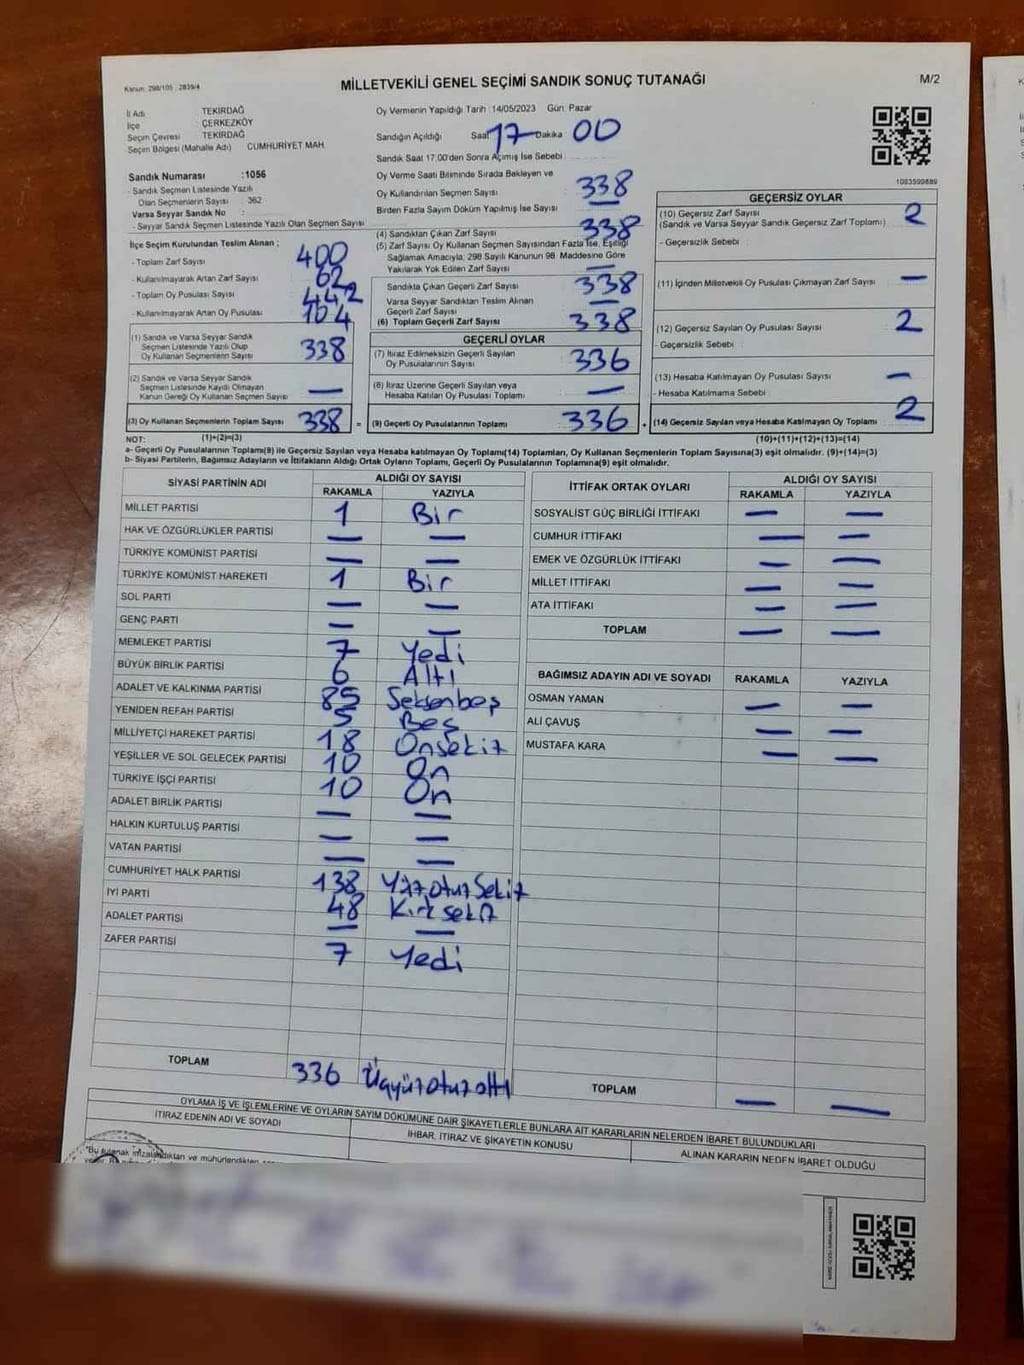 Kanun: 298/105 , 2839/4
MİLLETVEKİLİ GENEL SEÇİMİ SANDIK SONUÇ TUTANAĞI
M/2
İl Adı TEKİRDAĞ
İlçe : ÇERKEZKÖY
Seçim Çevresi TEKİRDAĞ
Seçim Bölgesi (Mahalle Adı) CUMHURİYET MAH.
Sandık Numarası :1056
- Sandık Seçmen Listesinde Yazılı
Olan Seçmenlerin Sayısı 362
Varsa Seyyar Sandık No :
- Seyyar Sandık Seçmen Listesinde Yazılı Olan Seçmen Sayısı
İlçe Seçim Kurulundan Teslim Alınan ;
- Toplam Zarf Sayısı 400
- Kullanılmayarak Artan Zarf Sayısı 62
- Toplam Oy Pusulası Sayısı 442
- Kullanılmayarak Artan Oy Pusulası 104
(1) Sandık ve Varsa Seyyar Sandık
Seçmen Listesinde Yazılı Olup
Oy Kullanan Seçmenlerin Sayısı 338
(2) Sandık ve Varsa Seyyar Sandık
Seçmen Listesinde Kaydı Olmayan
Kanun Gereği Oy Kullanan Seçmen Sayısı —
(3) Oy Kullanan Seçmenlerin Toplam Sayısı 338 =
Oy Vermenin Yapıldığı Tarih : 14/05/2023 Gün: Pazar
Sandığın Açıldığı Saat 17 Dakika 00
Sandık Saat 17.00'den Sonra Açılmış İse Sebebi
Oy Verme Saati Bitiminde Sırada Bekleyen ve
Oy Kullandırılan Seçmen Sayısı 338
Birden Fazla Sayım Döküm Yapılmış İse Sayısı —
(4) Sandıktan Çıkan Zarf Sayısı 338
(5) Zarf Sayısı Oy Kullanan Seçmen Sayısından Fazla İse, Eşitliği
Sağlamak Amacıyla; 298 Sayılı Kanunun 98. Maddesine Göre
Yakılarak Yok Edilen Zarf Sayısı —
Sandıkta Çıkan Geçerli Zarf Sayısı 338
Varsa Seyyar Sandıktan Teslim Alınan
Geçerli Zarf Sayısı —
(6) Toplam Geçerli Zarf Sayısı 338
GEÇERLİ OYLAR
(7) İtiraz Edilmeksizin Geçerli Sayılan
Oy Pusulalarının Sayısı 336
(8) İtiraz Üzerine Geçerli Sayılan veya
Hesaba Katılan Oy Pusulası Toplamı —
(9) Geçerli Oy Pusulalarının Toplamı 336 +
1003590889
GEÇERSİZ OYLAR
(10) Geçersiz Zarf Sayısı 2
(Sandık ve Varsa Seyyar Sandık Geçersiz Zarf Toplamı)
- Geçersizlik Sebebi :
(11) İçinden Milletvekili Oy Pusulası Çıkmayan Zarf Sayısı —
(12) Geçersiz Sayılan Oy Pusulası Sayısı 2
- Geçersizlik Sebebi :
(13) Hesaba Katılmayan Oy Pusulası Sayısı —
- Hesaba Katılmama Sebebi :
(14) Geçersiz Sayılan veya Hesaba Katılmayan Oy Toplamı 2
NOT: (1)+(2)=(3) (10)+(11)+(12)+(13)=(14)
a- Geçerli Oy Pusulalarının Toplamı(9) ile Geçersiz Sayılan veya Hesaba katılmayan Oy Toplamı(14) Toplamları, Oy Kullanan Seçmenlerin Toplam Sayısına(3) eşit olmalıdır. (9)+(14)=(3)
b- Siyasi Partilerin, Bağımsız Adayların ve İttifakların Aldığı Ortak Oyların Toplamı, Geçerli Oy Pusulalarının Toplamına(9) eşit olmalıdır.
SİYASİ PARTİNİN ADI ALDIĞI OY SAYISI
RAKAMLA YAZIYLA
MİLLET PARTİSİ 1 Bir
HAK VE ÖZGÜRLÜKLER PARTİSİ — —
TÜRKİYE KOMÜNİST PARTİSİ — —
TÜRKİYE KOMÜNİST HAREKETİ 1 Bir
SOL PARTİ — —
GENÇ PARTİ — —
MEMLEKET PARTİSİ 7 Yedi
BÜYÜK BİRLİK PARTİSİ 6 Altı
ADALET VE KALKINMA PARTİSİ 85 Seksenbeş
YENİDEN REFAH PARTİSİ 5 Beş
MİLLİYETÇİ HAREKET PARTİSİ 18 Onsekiz
YEŞİLLER VE SOL GELECEK PARTİSİ 10 On
TÜRKİYE İŞÇİ PARTİSİ 10 On
ADALET BİRLİK PARTİSİ — —
HALKIN KURTULUŞ PARTİSİ — —
VATAN PARTİSİ — —
CUMHURİYET HALK PARTİSİ 138 YüzotuzSekiz
İYİ PARTİ 48 Kırksekiz
ADALET PARTİSİ — —
ZAFER PARTİSİ 7 Yedi
TOPLAM 336 Üçyüzotuzaltı
İTTİFAK ORTAK OYLARI ALDIĞI OY SAYISI
RAKAMLA YAZIYLA
SOSYALİST GÜÇ BİRLİĞİ İTTİFAKI — —
CUMHUR İTTİFAKI — —
EMEK VE ÖZGÜRLÜK İTTİFAKI — —
MİLLET İTTİFAKI — —
ATA İTTİFAKI — —
TOPLAM — —
BAĞIMSIZ ADAYIN ADI VE SOYADI RAKAMLA YAZIYLA
OSMAN YAMAN — —
ALİ ÇAVUŞ — —
MUSTAFA KARA — —
TOPLAM — —
OYLAMA İŞ VE İŞLEMLERİNE VE OYLARIN SAYIM DÖKÜMÜNE DAİR ŞİKAYETLERLE BUNLARA AİT KARARLARIN NELERDEN İBARET BULUNDUKLARI
İTİRAZ EDENİN ADI VE SOYADI
İHBAR, İTİRAZ VE ŞİKAYETİN KONUSU
ALINAN KARARIN NEDEN İBARET OLDUĞU
"Bu tutanak imzalandıktan ve mühürlendikten